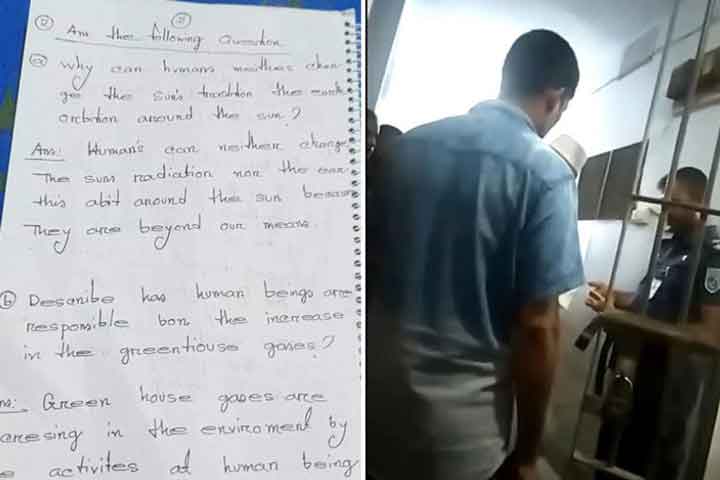 Ans the following Question
(a) Why can humans neither chan
ges the sun's tradition the earth
orbition around the sun?
Ans: Human's can neither change
The suns radiation nor the ear
this abit around the sun because
They are beyond our means.
(b) Describe has human beings are
responsible bon the increase
in the greenhouse gases?
ns: Green house gases are
aresing in the enviroment by
e activites at human being